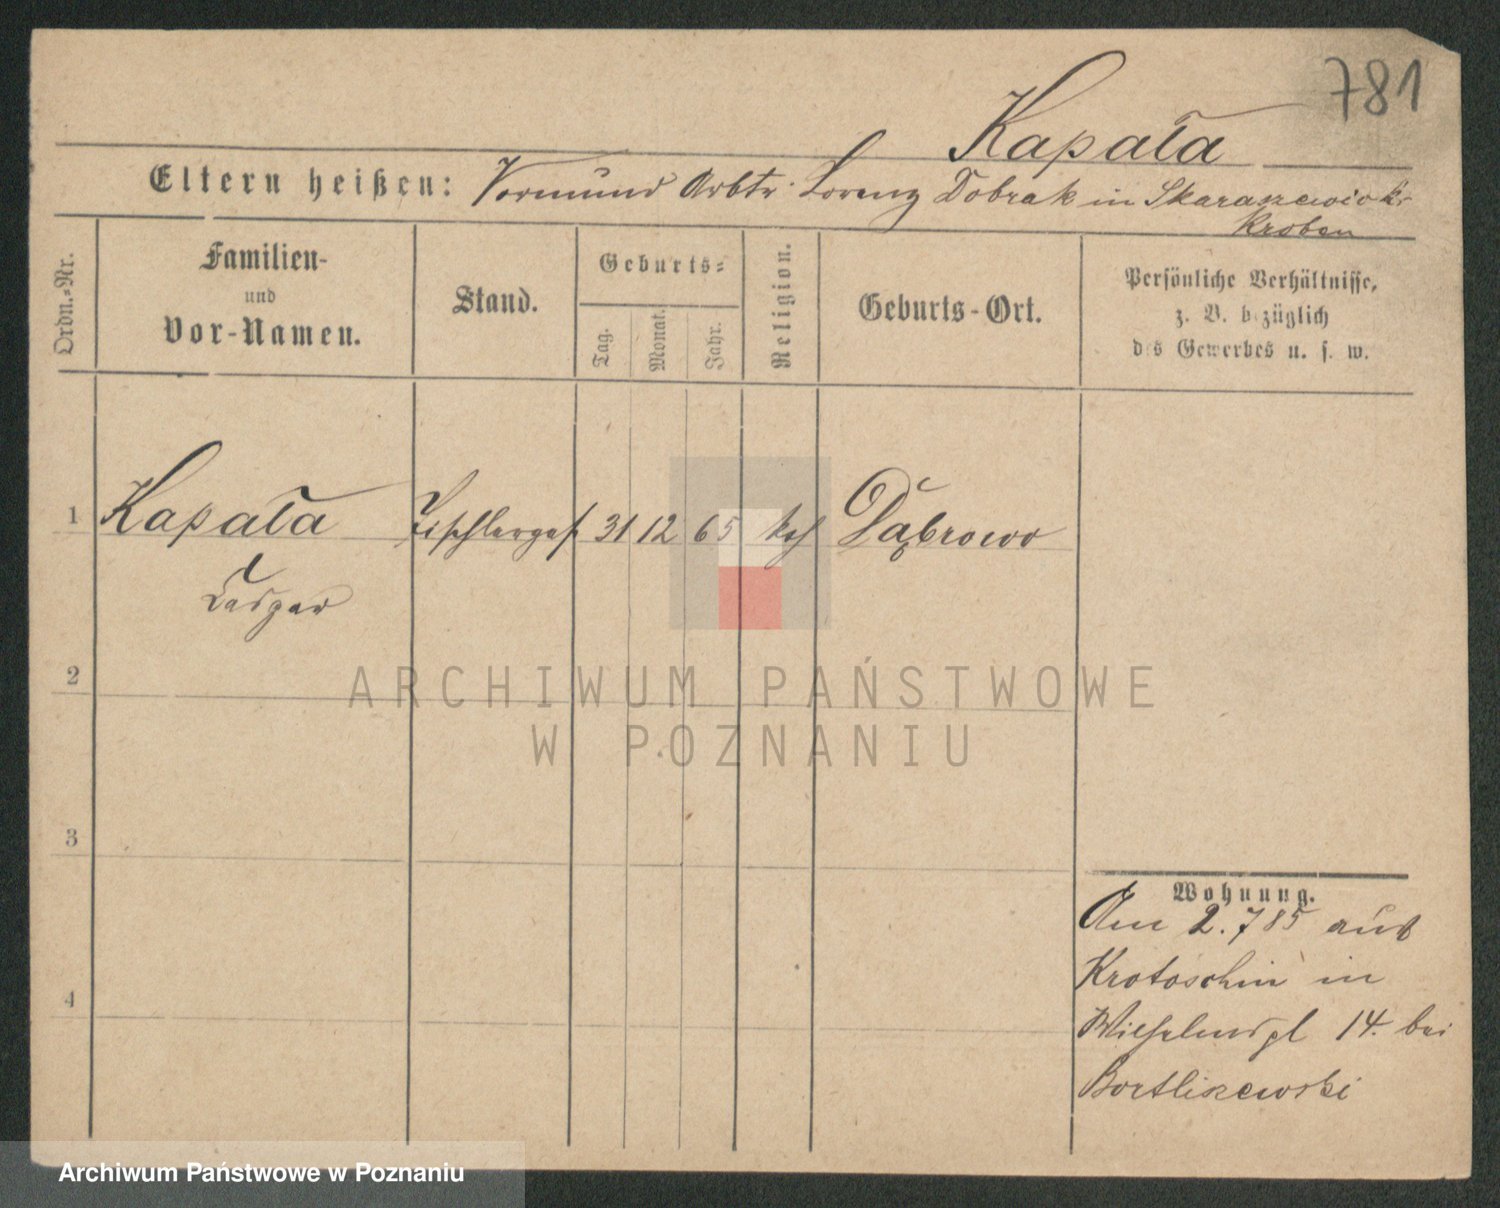 781
Kapała
Eltern heißen: Vormund Arbtr. Lorenz Dobrak in Skaraszewo Kr.
Kroben
Ordn.-Nr.
Familien-
und
Vor-Namen.
Stand.
Geburts-
Tag.
Monat.
Jahr.
Religion.
Geburts-Ort.
Persönliche Verhältnisse,
z. B. bezüglich
des Gewerbes u. s. w.
1 Kapała Tischlerges 31 12 65 kath Dąbrowo
Caspar
2
3
4
Wohnung.
Am 2.7 85 aus
Krotoschin in
Wilhelmspl 14. bei
Bartliszewski
ARCHIWUM PAŃSTWOWE
W POZNANIU
Archiwum Państwowe w Poznaniu